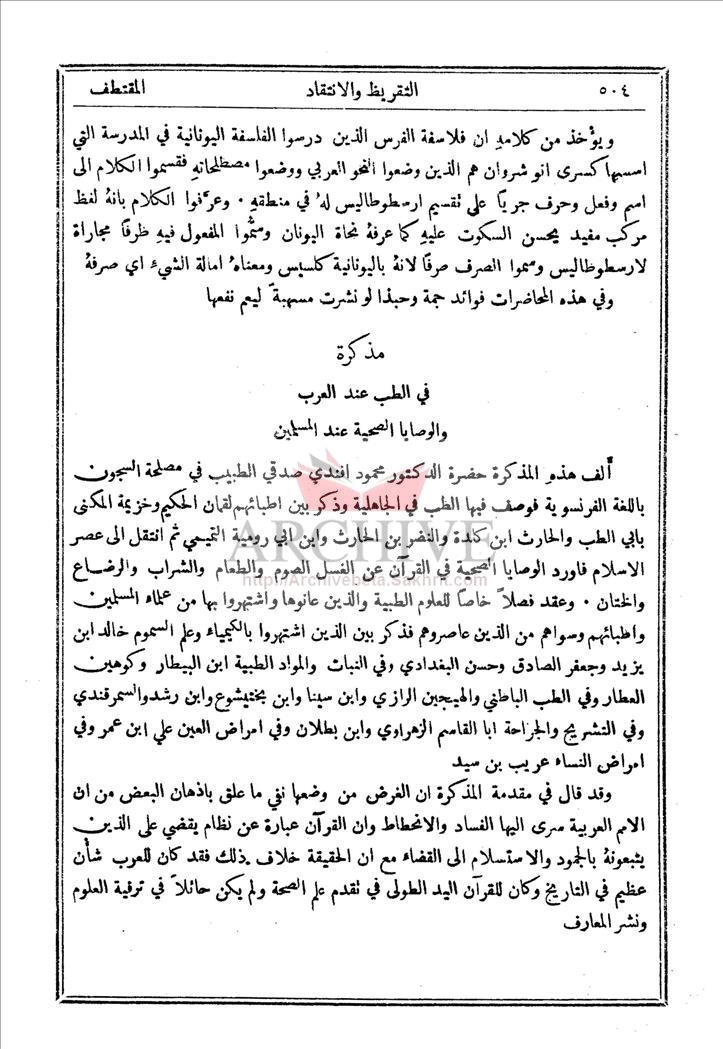 ٥٠٤ التقريظ والانتقاد المقتطف
ويؤخذ من كلامهِ ان فلاسفة الفرس الذين درسوا الفلسفة اليونانية في المدرسة التي
اسسها كسرى انو شروان هم الذين وضعوا النحو العربي ووضعوا مصطلحاتهِ فقسموا الكلام الى
اسم وفعل وحرف جريًا على تقسيم ارسطوطاليس لهُ في منطقهِ . وعرَّفوا الكلام بانهُ لفظ
مركب مفيد يحسن السكوت عليهِ كما عرفهُ نحاة اليونان وسمُّوا المفعول فيهِ ظرفًا مجاراة
لارسطوطاليس وسموا الصرف صرفًا لانهُ باليونانية كلسيس ومعناهُ امالة الشيءِ اي صرفهُ
وفي هذه المحاضرات فوائد جمة وحبذا لو نشرت مسهبةً ليعم نفعها
مذكرة
في الطب عند العرب
والوصايا الصحية عند المسلمين
أَلف هذهِ المذكرة حضرة الدكتور محمود افندي صدقي الطبيب في مصلحة السجون
باللغة الفرنسوية فوصف فيها الطب في الجاهلية وذكر بين اطبائهم لقمان الحكيم وخزيمة المكنى
بابي الطب والحارث ابن كلدة والنضر بن الحارث وابن ابي رومية التميمي ثم انتقل الى عصر
الاسلام فاورد الوصايا الصحية في القرآن عن الغسل الصوم والطعام والشراب والرضاع
والختان . وعقد فصلاً خاصًا للعلوم الطبية والذين عانوها واشتهروا بها من علماء المسلمين
واطبائهم وسواهم من الذين عاصروهم فذكر بين الذين اشتهروا بالكيمياء وعلم السموم خالد ابن
يزيد وجعفر الصادق وحسن البغدادي وفي النبات والمواد الطبية ابن البيطار وكوهين
العطار وفي الطب الباطني والهيجين الرازي وابن سينا وابن بختيشوع وابن رشد والسمرقندي
وفي التشريح والجراحة ابا القاسم الزهراوي وابن بطلان وفي امراض العين علي ابن عمر وفي
امراض النساء عريب بن سيد
وقد قال في مقدمة المذكرة ان الغرض من وضعها نفي ما علق باذهان البعض من ان
الامم العربية سرى اليها الفساد والانحطاط وان القرآن عبارة عن نظام يقضي على الذين
يتبعونهُ بالجمود والاستسلام الى القضاء مع ان الحقيقة خلاف ذلك فقد كان للعرب شأن
عظيم في التاريخ وكان للقرآن اليد الطولى في تقدم علم الصحة ولم يكن حائلاً في ترقية العلوم
ونشر المعارف
ARCHIVE
http://Archivebeta.Sakhrit.com